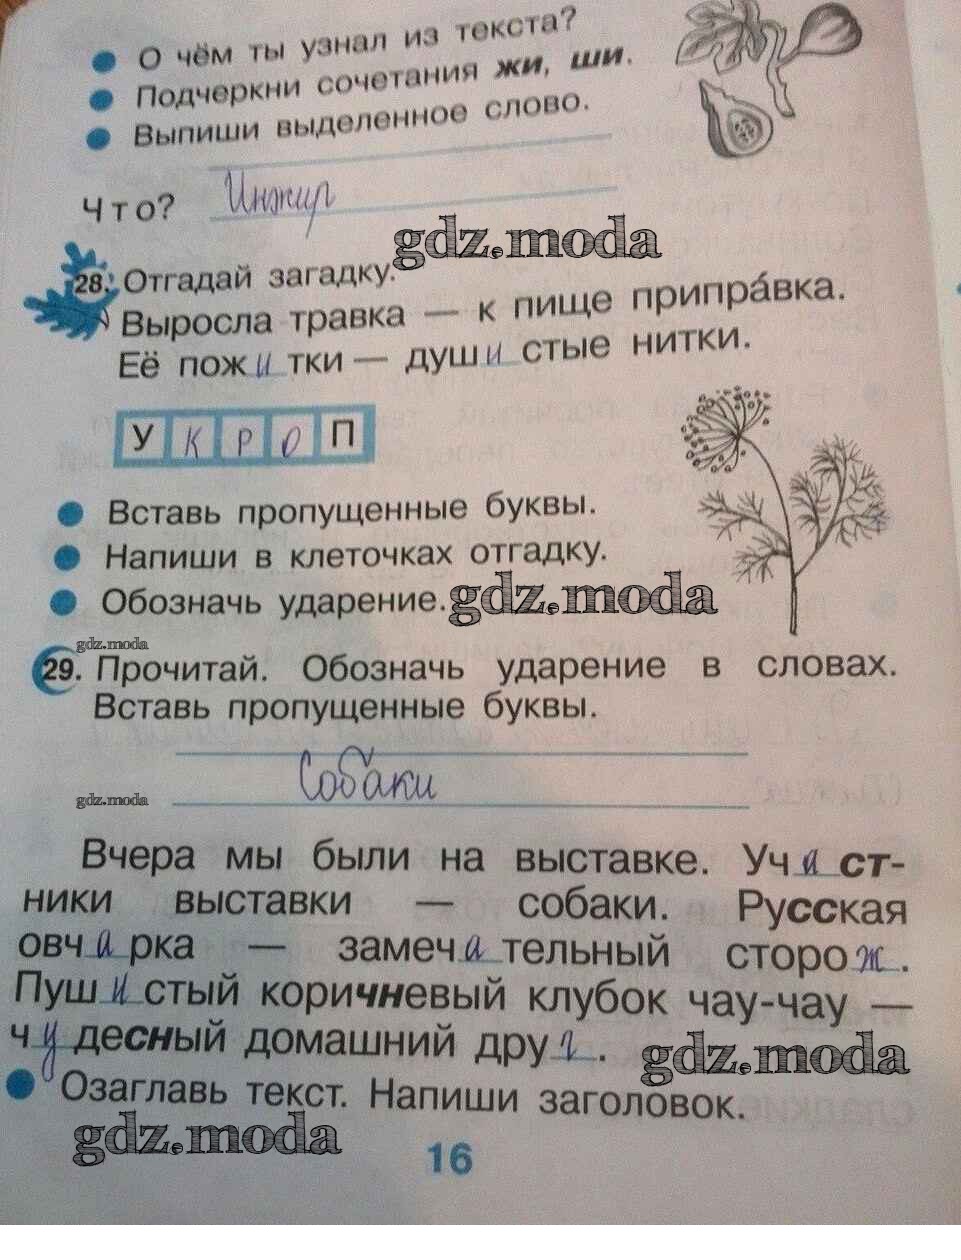 О чём ты узнал из текста?
Подчеркни сочетания жи, ши.
Выпиши выделенное слово.
Что? Инжир
gdz.moda
28. Отгадай загадку.
Выросла травка — к пище припра́вка.
Её пожитки — душистые нитки.
УКРОП
Вставь пропущенные буквы.
Напиши в клеточках отгадку.
Обозначь ударение.
gdz.moda
gdz.moda
29. Прочитай. Обозначь ударение в словах.
Вставь пропущенные буквы.
Собаки
gdz.moda
Вчера мы были на выставке. Участ-
ники выставки — собаки. Русская
овчарка — замечательный сторож.
Пушистый коричневый клубок чау-чау —
чудесный домашний друг.
gdz.moda
Озаглавь текст. Напиши заголовок.
gdz.moda
16